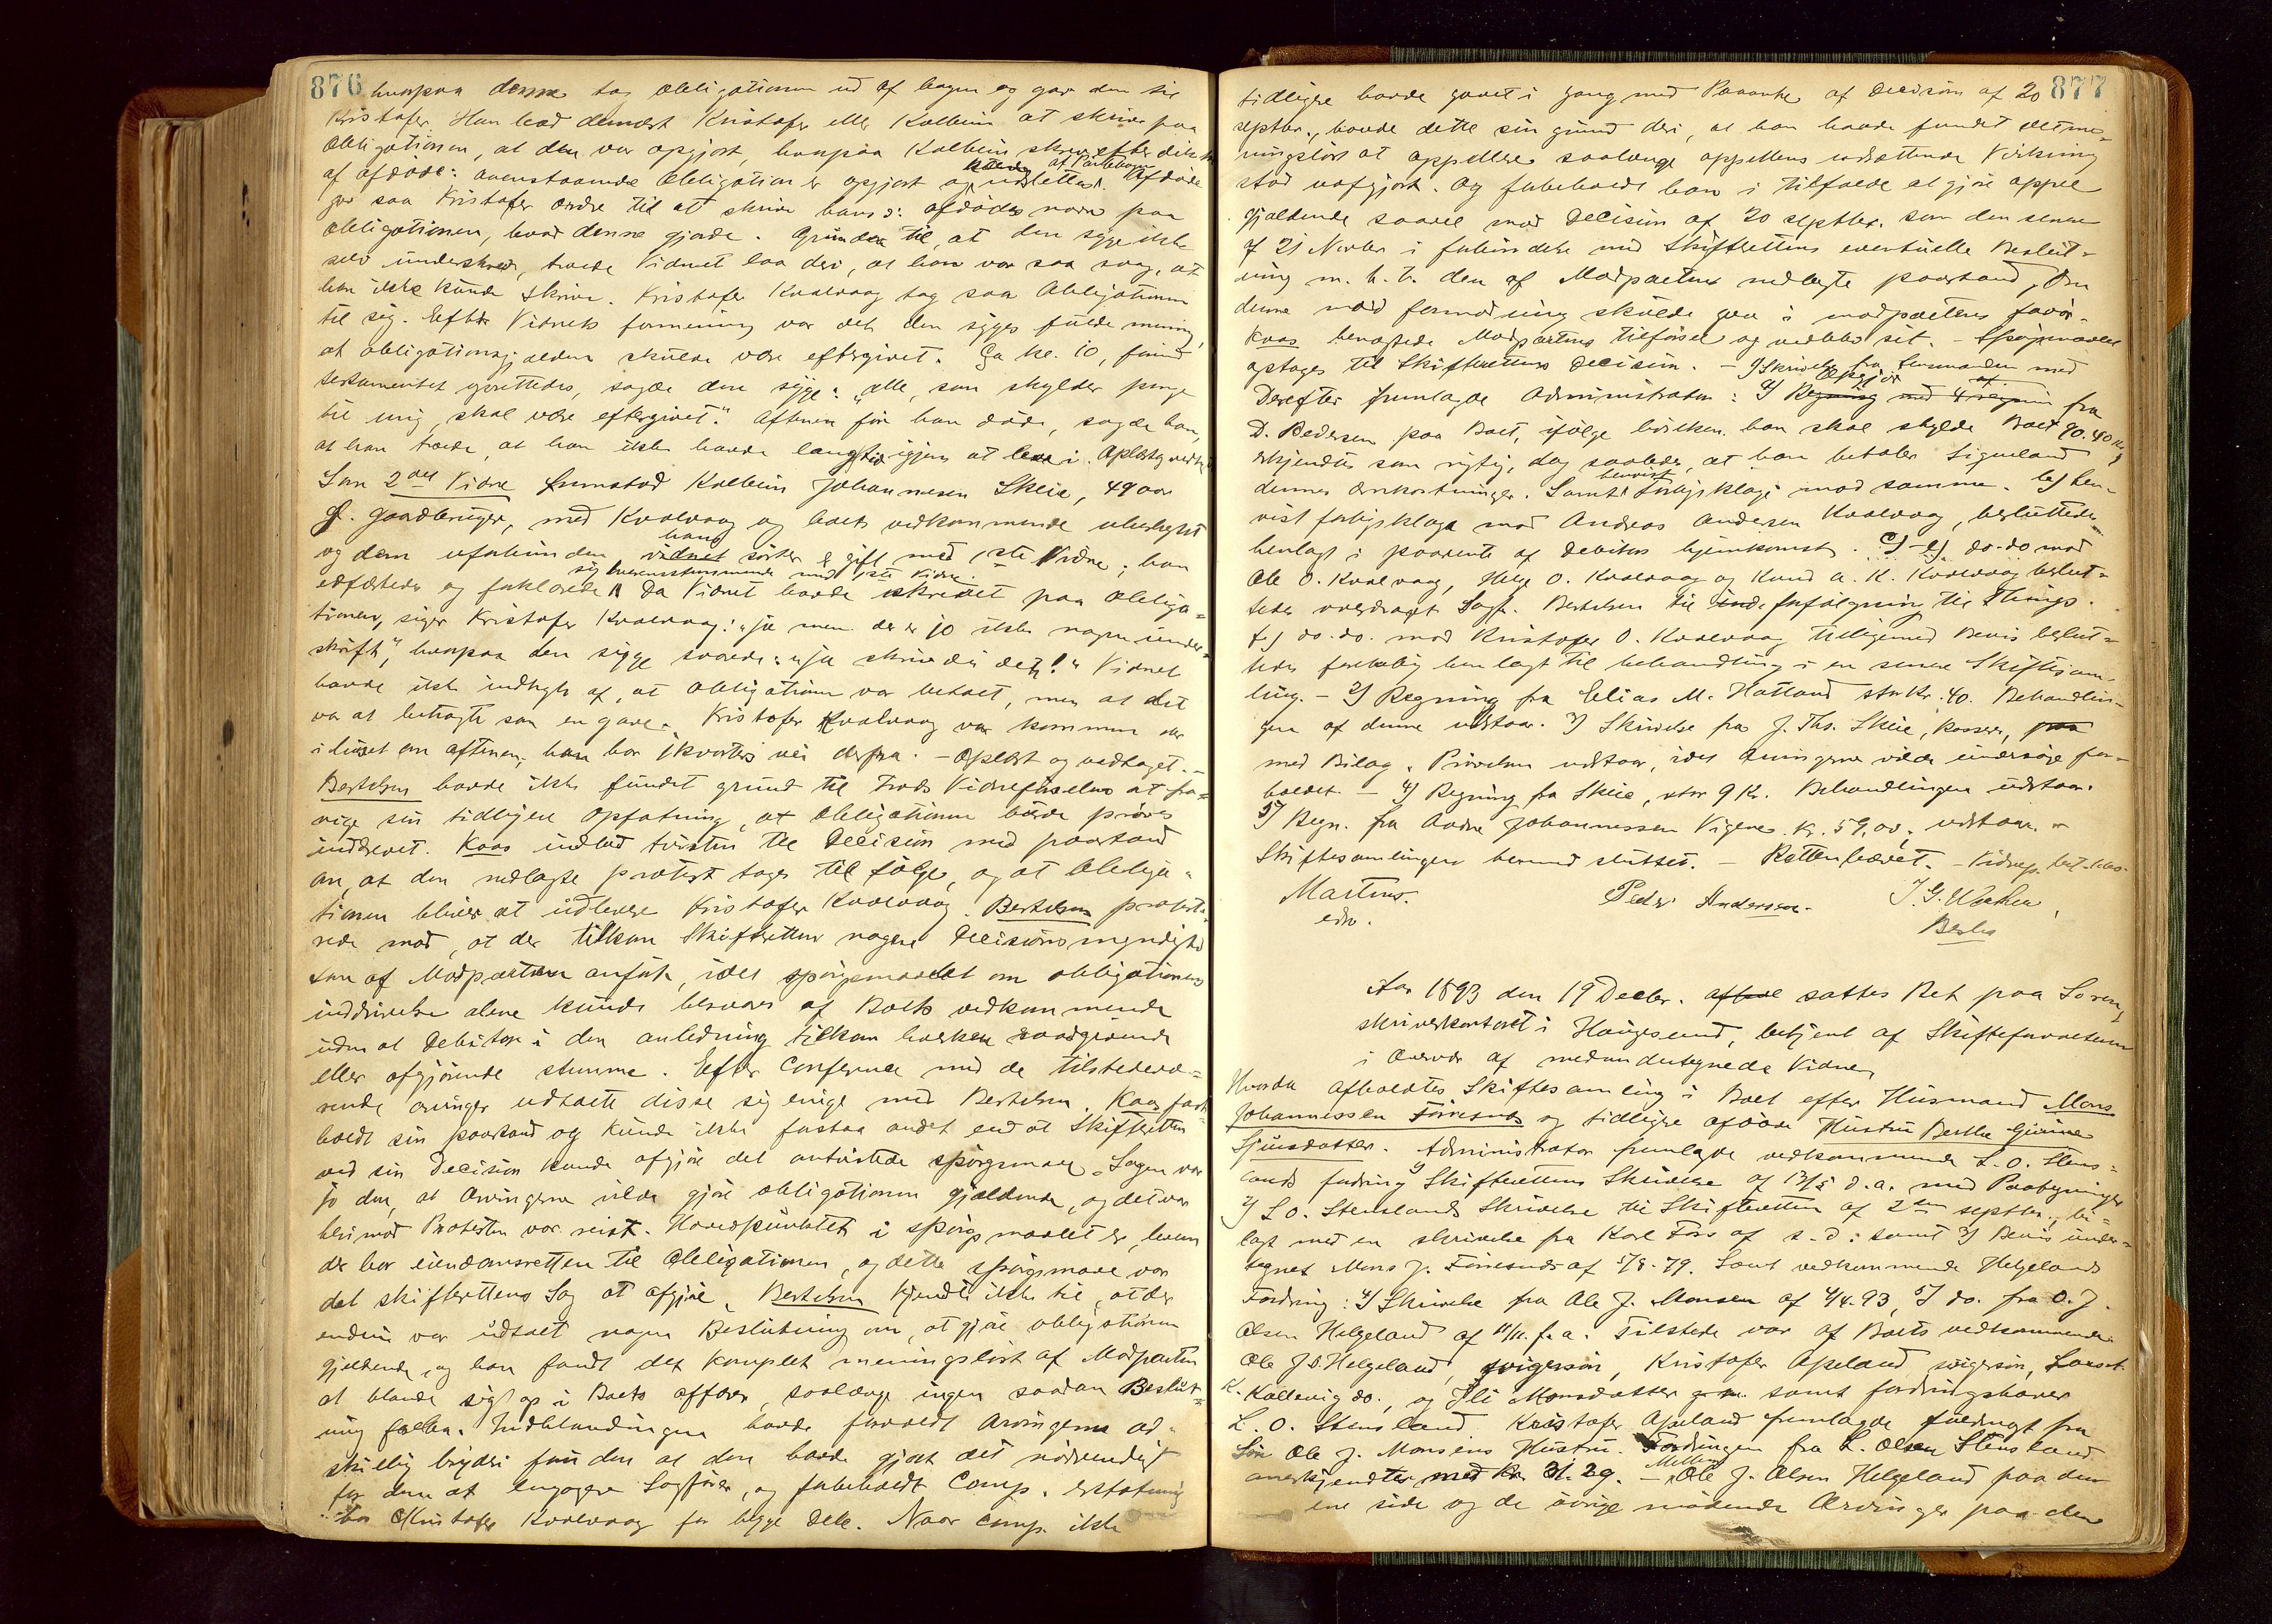 876
hvorpaa denne tog obligationen ud af bogen og gav den til
Kristofer. Han bad dernæst Kristofer eller Kolbein at skrive paa
Obligationen, at den var opgjort, hvorpaa Kolbein skrev efter
af afdøde: ovenstaaende Obligation er opgjort og udslettes. Afdøde
gav saa Kristofer ordre til at skrive hans ɔ: afdødes navn paa
obligationen, hvad denne gjorde. Grunden til, at den syge ikke
selv underskrev, troede Vidnet laa deri, at han var saa svag, at
han ikke kunde skrive. Kristofer Kvalvaag tog saa Obligationen
til sig. Efter Vidnets formening var det den syges fulde mening,
at obligationsgjælden skulde være eftergivet. Ca kl. 10, førend
testamentet oprettedes, sagde den syge: "alle, som skylder penge
til mig, skal være eftergivet." Aftenen før han døde, sagde han,
at han troede, at han ikke havde lang tid igjen at leve i. Oplæst og vedtaget
Som 2det Vidne fremstod Kolbein Johannesen Skeie, 49 aar
g. gaardbruger, med Kvalvaag og boets vedkommende ubeslægtet
og dem uforbunden, hans vidnet søster er gift med 1ste Vidne; han
edfæstedes og forklarede sig overensstemmende med 1ste Vidne. Da Vidnet havde skrevet paa Obliga-
tionen, siger Kristofer Kvalvaag: "ja men der er jo ikke nogen under-
skrift", hvorpaa den syge svarede: "ja skriv du det!" Vidnet
havde ikke indtryk af, at Obligationen var betalt, men at det
var at betragte som en gave. Kristofer Kvalvaag var kommen
i huset om aftenen; han bor 1 kvarters vei derfra. – Oplæst og vedtaget. –
Bertelsen havde ikke fundet grund til trods Vidneførselen at fra-
vige sin tidligere opfatning, at Obligationen burde prøves
inddrevet. Kaas indlod tvisten til Decision med paastand
om, at den nedlagte protest tages til følge, og at Obliga-
tionen bliver at udlevere Kristofer Kvalvaag. Bertelsen proteste-
rede mod, at der tilkom Skifteretten nogen Decisionsmyndighed
som af Modparten anført, idet spørgsmaalet om obligationens
inddrivelse alene kunde besvares af Boets vedkommende
uden at Debitor i den anledning tilkom hverken raadgivende
eller afgjørende stemme. Efter Conference med de tilstedevæ-
rende arvinger udtalte disse sig enige med Bertelsen. Kaas fast-
holdt sin paastand og kunde ikke forstaa andet end at Skifteretten
ved sin Decision kunde afgjøre det omtvistede spørgsmaal. Sagen var
jo den, at Arvingerne vilde gjøre obligationen gjældende, og det var
herimod Protesten var reist. Hovedpunktet i spørgsmaalet er, hvem
der har eiendomsretten til Obligationen, og dette spørgsmaal var
det skifterettens Sag at afgjøre. Bertelsen kjendte ikke til, at der
endnu var udtalt nogen Beslutning om, at gjøre obligationen
gjældende, og han fandt det komplet meningsløst af Modparten
at blande sig op i Boets affærer, saalænge ingen saadan Beslut-
ning falden. Indblandingen havde forvoldt Arvingerne ad-
skillig bryderi foruden at den havde gjort det nødvendigt
for dem at engagere Sagfører, og forbeholdt Comp. erstatning
hos Kristofer Kvalvaag for begge Dele. Naar Comp. ikke
877
tidligere havde gaaet i gang med Paaanke af Decision af 20
septbr., havde dette sin grund deri, at han havde fundet det me-
ningsløst at appellere saalænge appellens udsættende Virkning
stod uafgjort. Og forbeholdt han i tilfælde at gjøre appel
gjældende saavel mod Decision af 20 septbr. som den senere
af 21 Novbr i forbindelse med Skifterettens eventuelle Beslut-
ning m. h. t. den af Modparten nedlagte paastand, om
denne mod formodning skulde gaa i modpartens favør.
Kaas benægtede Modpartens tilførsel og vedblev sit. – Spørgsmaalet
optages til Skifterettens Decision. – 1) Skrivelse fra Lensmanden med
Derefter fremlagde Administrator: 1) Opgjør fra
D. Pedersen paa Boet, ifølge hvilken han skal skylde Boet 90.40
erkjendtes som rigtig, dog saaledes, at han betaler Sigueland
dennes omkostninger. Samt henvist Forligsklage mod samme. b) hen-
vist forligsklage mod Andreas Andersen Kvalvaag, besluttedes
henlagt i paavente af Debitors hjemkomst. c)–e) do. do mod
Ole O. Kvalvaag, Helge O. Kvalvaag og Knud A. K. Kvalvaag beslut-
tedes overdraget Sagf. Bertelsen til forfølgning til Things.
f.) do. do. mod Kristofer O. Kvalvaag tilligemed Bevis beslut-
tedes foreløbig henlagt til behandling i en senere Skiftesam-
ling. – 2) Regning fra Elias M. Hatland stor Kr. 40. Behandlin-
gen af denne udstaar. 3) Skrivelse fra J. Ths. Skeie, kasserer,
med Bilag. Prøvelsen udstaar, idet Arvingerne vilde undersøge for-
holdet. – 4) Regning fra Skeie, stor 9 Kr. Behandlingen udstaar.
5) Regn. fra Andre Johannessen Vigene Kr. 59,00, udstaar. –
Skiftesamlingen hermed sluttet. – Retten hævet. –
Martens.
edv.
Peder Andersen.
Aar 1893 den 19 Decbr. sattes Ret paa Soren-
skriverkontoret i Haugesund, betjent af Skifteforvalteren
i Overvær af medundertegnede Vidner
Hvorda afholdtes Skiftesamling i Boet efter Husmand Mons
Johannessen Førresund og tidligere afdøde Hustru Berthe Gurine
Sjursdatter. Administrator fremlagde vedkommende L. O. Stens-
lands fordring 1) Skifterettens Skrivelse af 13/5 d.a. med Paategninger
2) L. O. Stenslands Skrivelse til Skifteretten af 2den septbr., bi-
lagt med en skrivelse fra Karl Fors af s. d: samt 3) Bevis under-
tegnet Mons J. Førresunds af 5/8. 79. Samt vedkommende Helgelands
Fordring: 4) Skrivelse fra Ole J. Monsen af 4/4. 93, 5) do. fra O. J.
Olsen Helgeland af 11/11. f. a. Tilstede var af Boets vedkommende
Ole J. O. Helgeland, svigersøn, Kristofer Apeland, svigersøn,
K. Kallevig do., og Eli Monsdatter samt fordringshaver
L. O. Stensland. Kristofer Apeland fremlagde fuldmagt fra
Søn Ole J. Monsens Hustru. Fordringen fra L. Olsen Stensland
anerkjendtes med Kr. 31.29. – Mellem Ole J. Olsen Helgeland paa den
ene side og de øvrige mødende Arvinger paa den